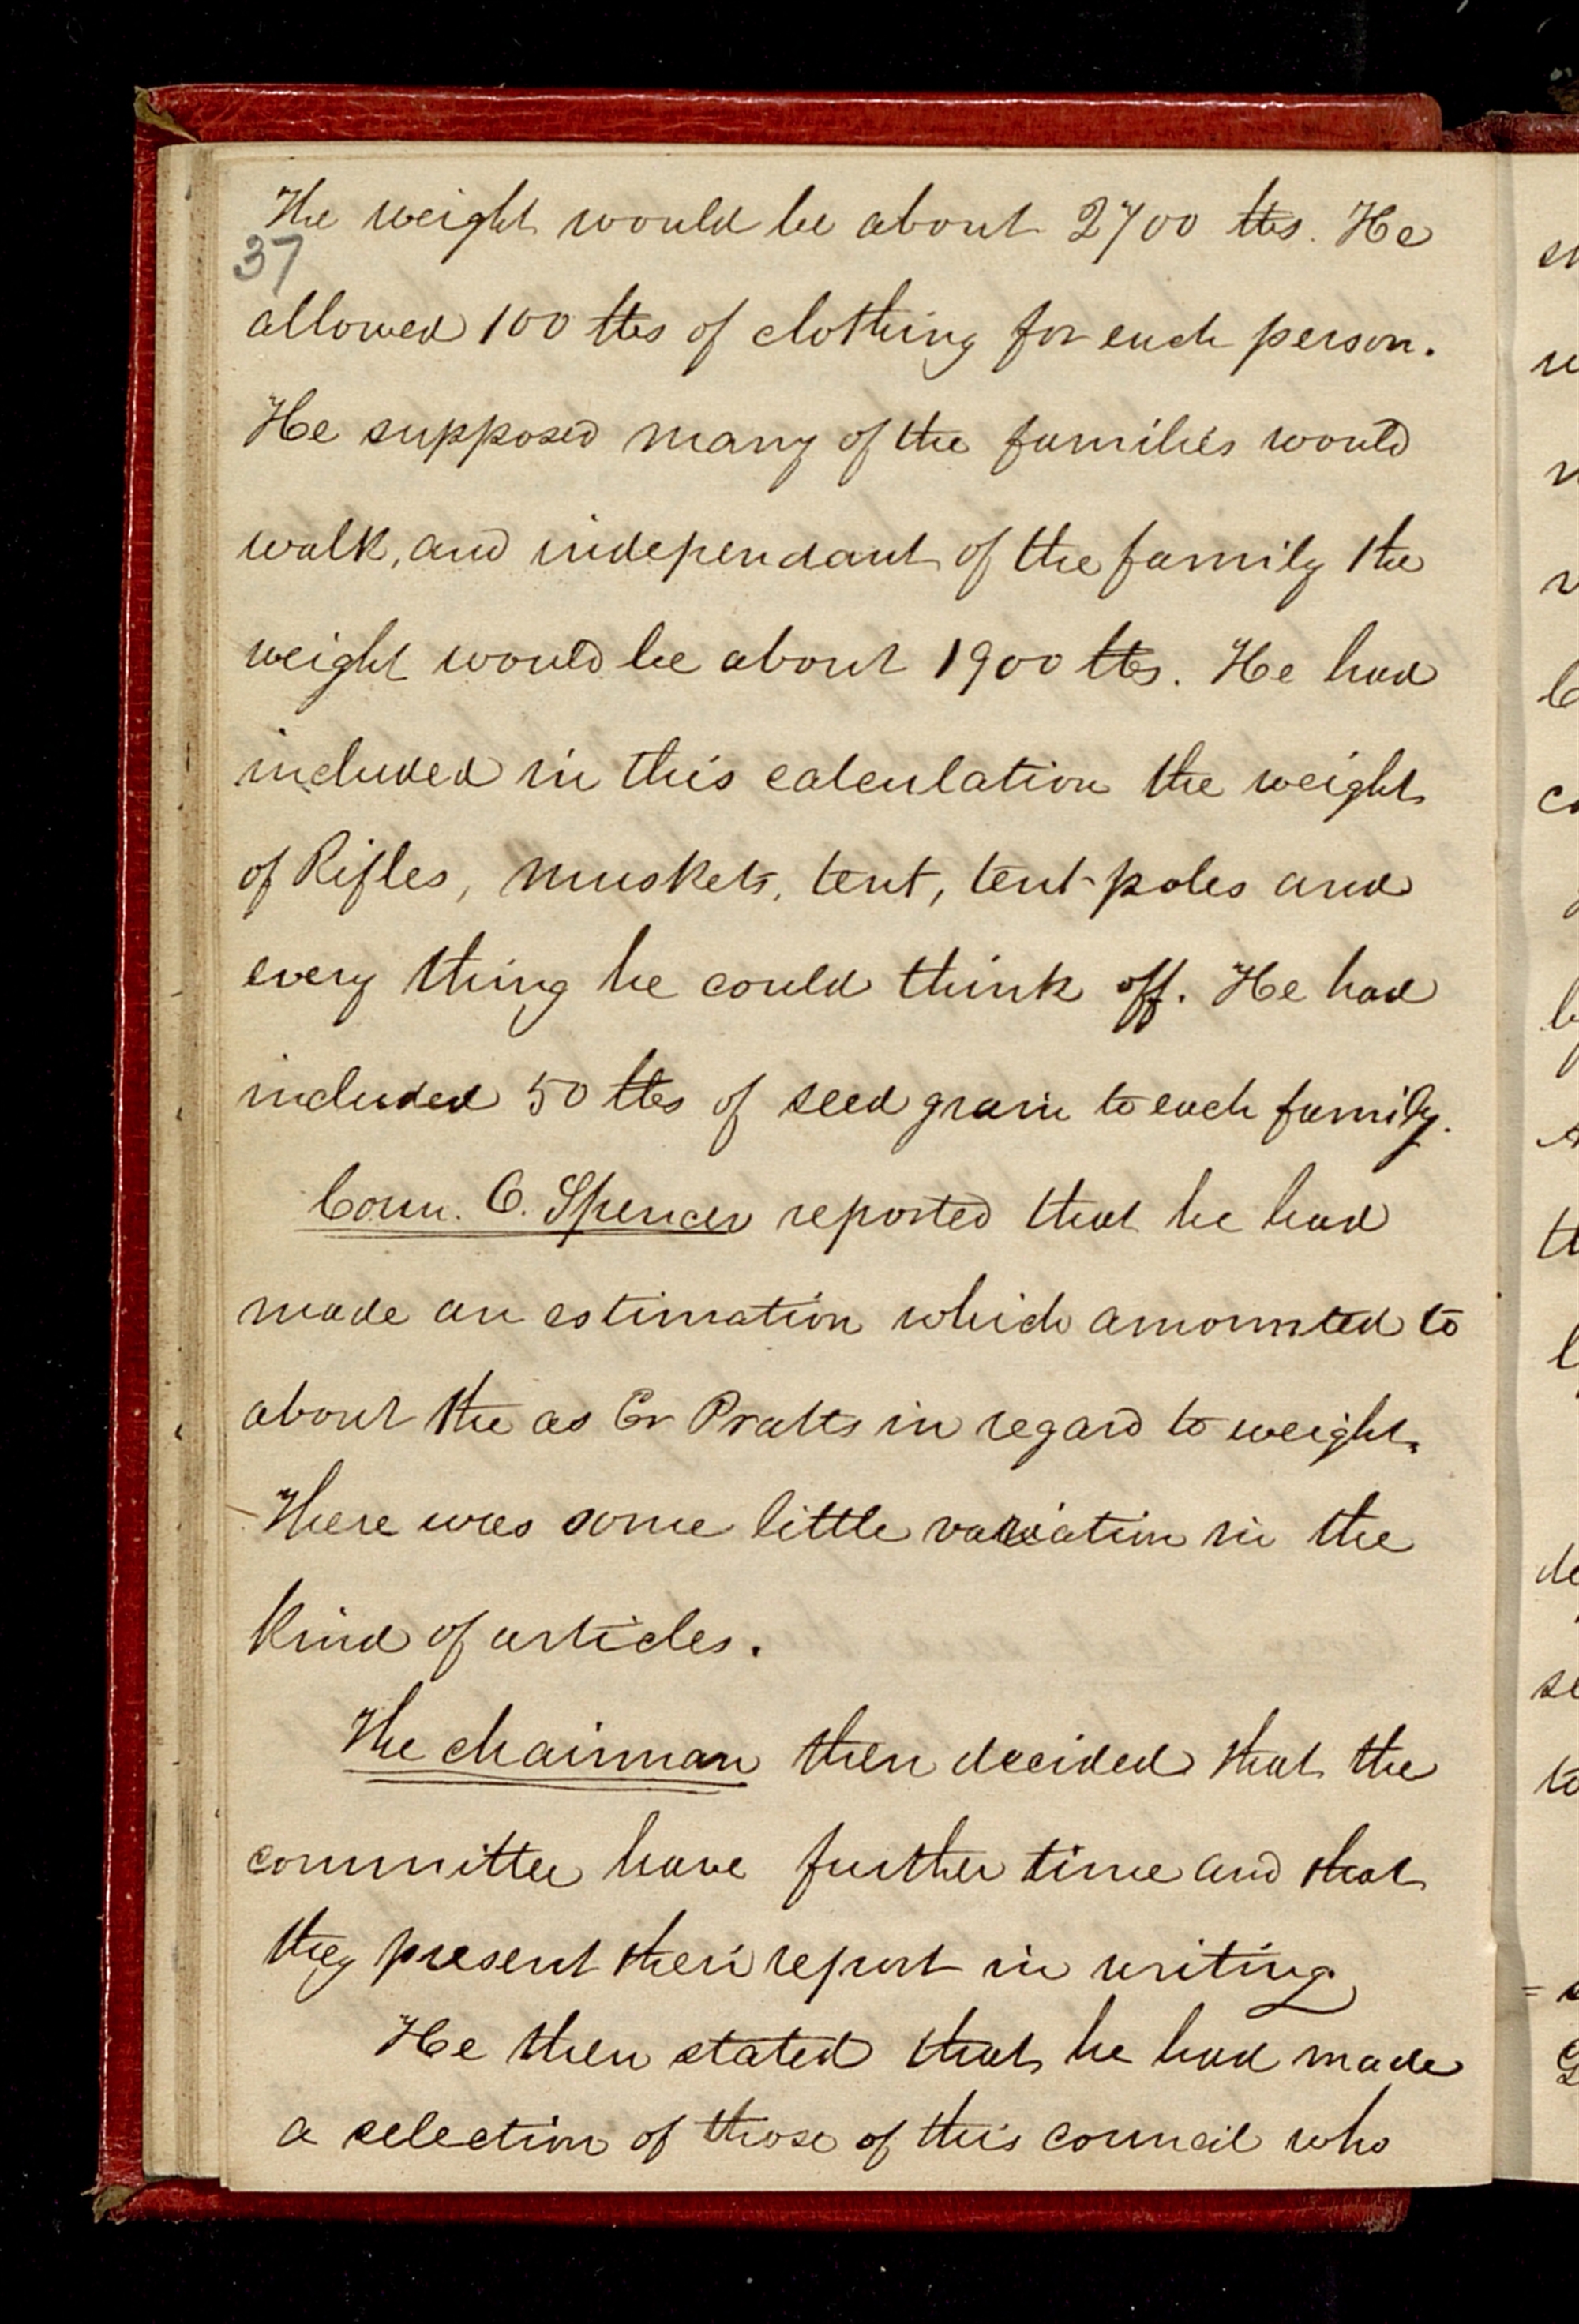 The weight would be about 2700 lbs. He
37
allowed 100 lbs of clothing for each person.
He supposed many of the families would
walk, and independant of the family the
weight would be about 1900 lbs. He had
included in this calculation the weight
of Rifles, muskets, tent, tent-poles and
every thing he could think off. He had
included 50 lbs of seed grain to each family.
Coun. O. Spencer reported that he had
made an estimation which amounted to
about the as Er Pratts in regard to weight.
There was some little variation in the
kind of articles.
The chairman then decided that the
committee have further time and that
they present their report in writing
He then stated that he had made
a selection of those of this council who